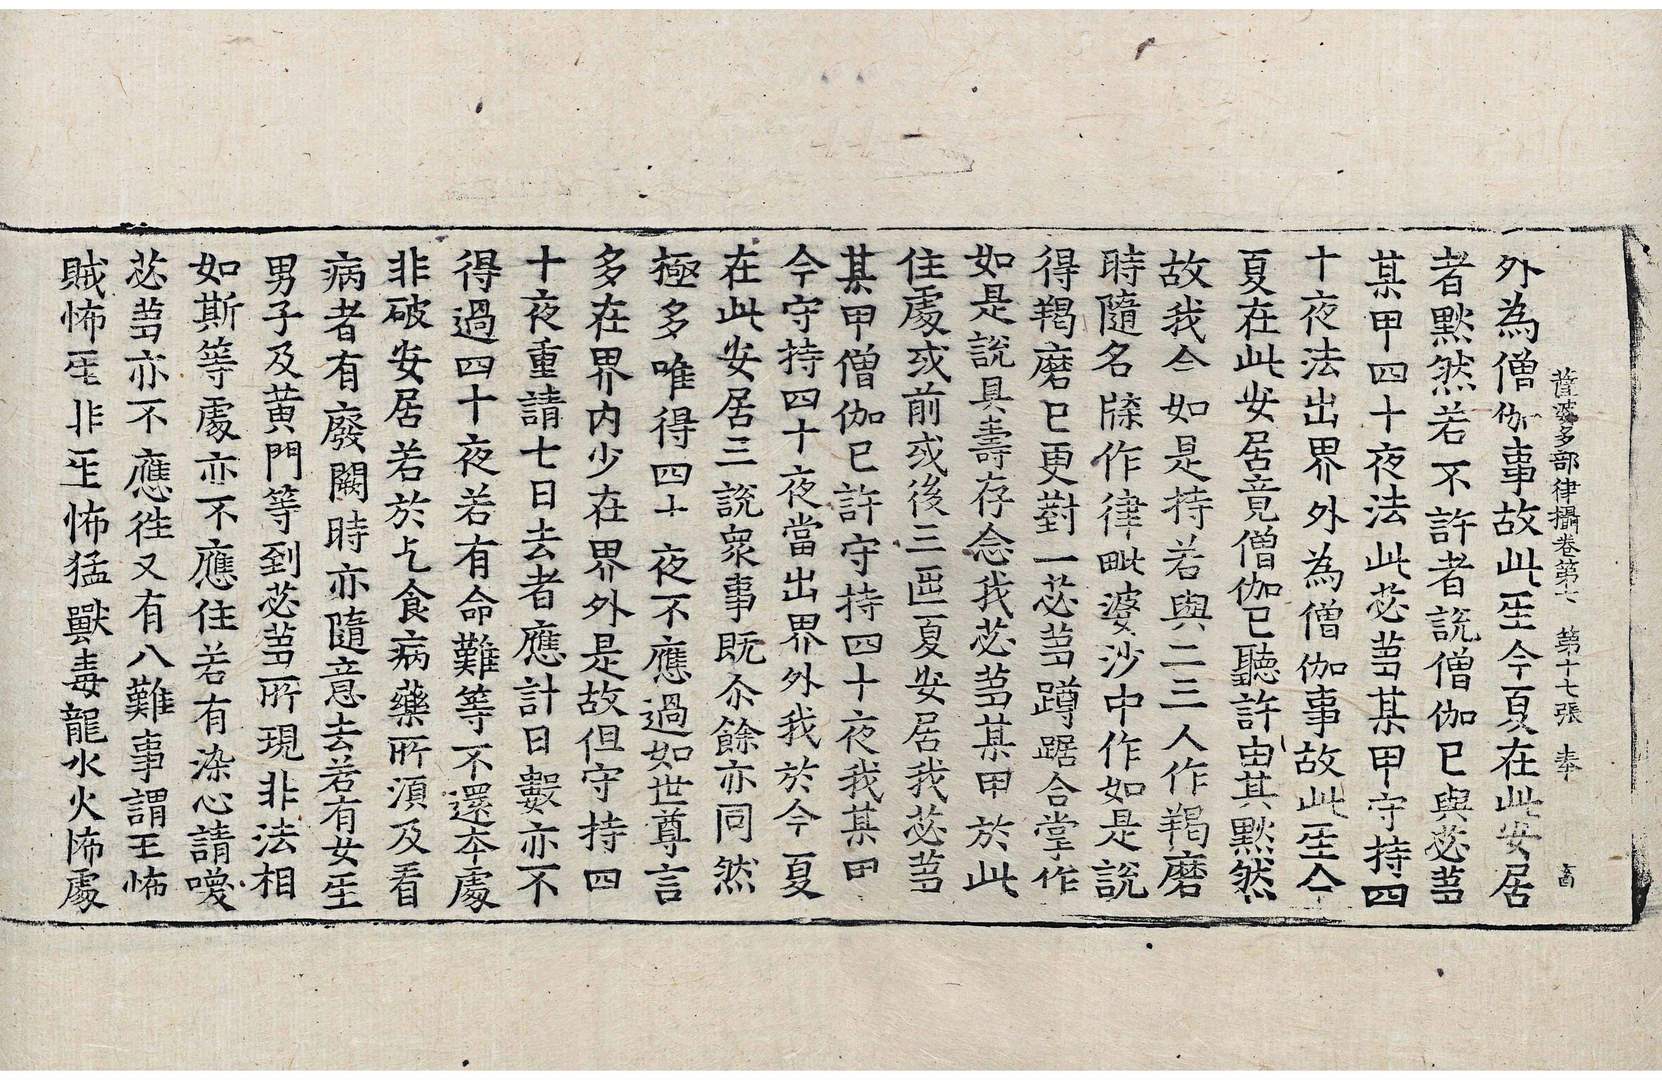 薩婆多部律攝卷第七　第十七張　奉
外為僧伽事故此𤯔今夏在此安居
者默然若不許者說僧伽已與苾蒭
某甲四十夜法此苾蒭某甲守持四
十夜法出界外為僧伽事故此𤯔今
夏在此安居竟僧伽已聽許由其默然
故我今如是持若與二三人作羯磨
時隨名牒作律毗婆沙中作如是說
得羯磨已更對一苾蒭蹲踞合掌作
如是說具壽存念我苾蒭某甲於此
住處或前或後三匝夏安居我苾蒭
某甲僧伽已許守持四十夜我某甲
今守持四十夜當出界外我於今夏
在此安居三說衆事既尒餘亦同然
極多唯得四十夜不應過如世尊言
多在界内少在界外是故但守持四
十夜重請七日去者應計日數亦不
得過四十夜若有命難等不還夲處
非破安居若於乞食病藥所湏及看
病者有廢闕時亦隨意去若有女𤯔
男子及黄門等到苾蒭所現非法相
如斯等處亦不應住若有染心請喚
苾蒭亦不應往又有八難事謂王怖
賊怖𤯔非𤯔怖猛獸毒龍水火怖處